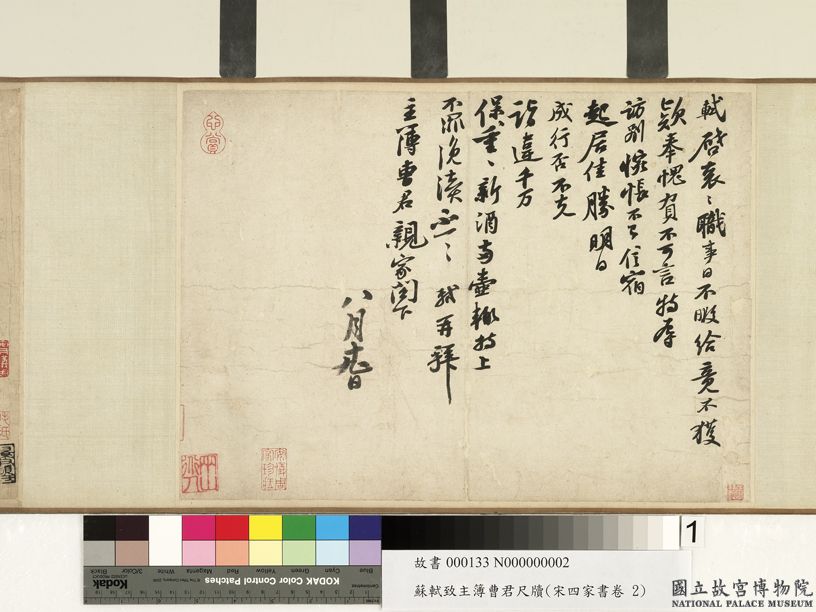 軾啓衰〻職事日不暇給竟不獲
款奉愧負不可言特辱
訪別惋悵不已信宿
起居佳勝明日
成行否不克
詣違千万
保重〻新酒兩壺輒持上
不罪浼瀆不一〻軾再拜
主簿曹君親家閣下
八月日
Kodak
KODAK Color Control Patches
Blue
Cyan
Green
Yellow
Red
Magenta
White
3/Color
Black
1
故書 000133 N000000002
蘇軾致主簿曹君尺牘(宋四家書卷 2)
國立故宮博物院
NATIONAL PALACE MUSEUM